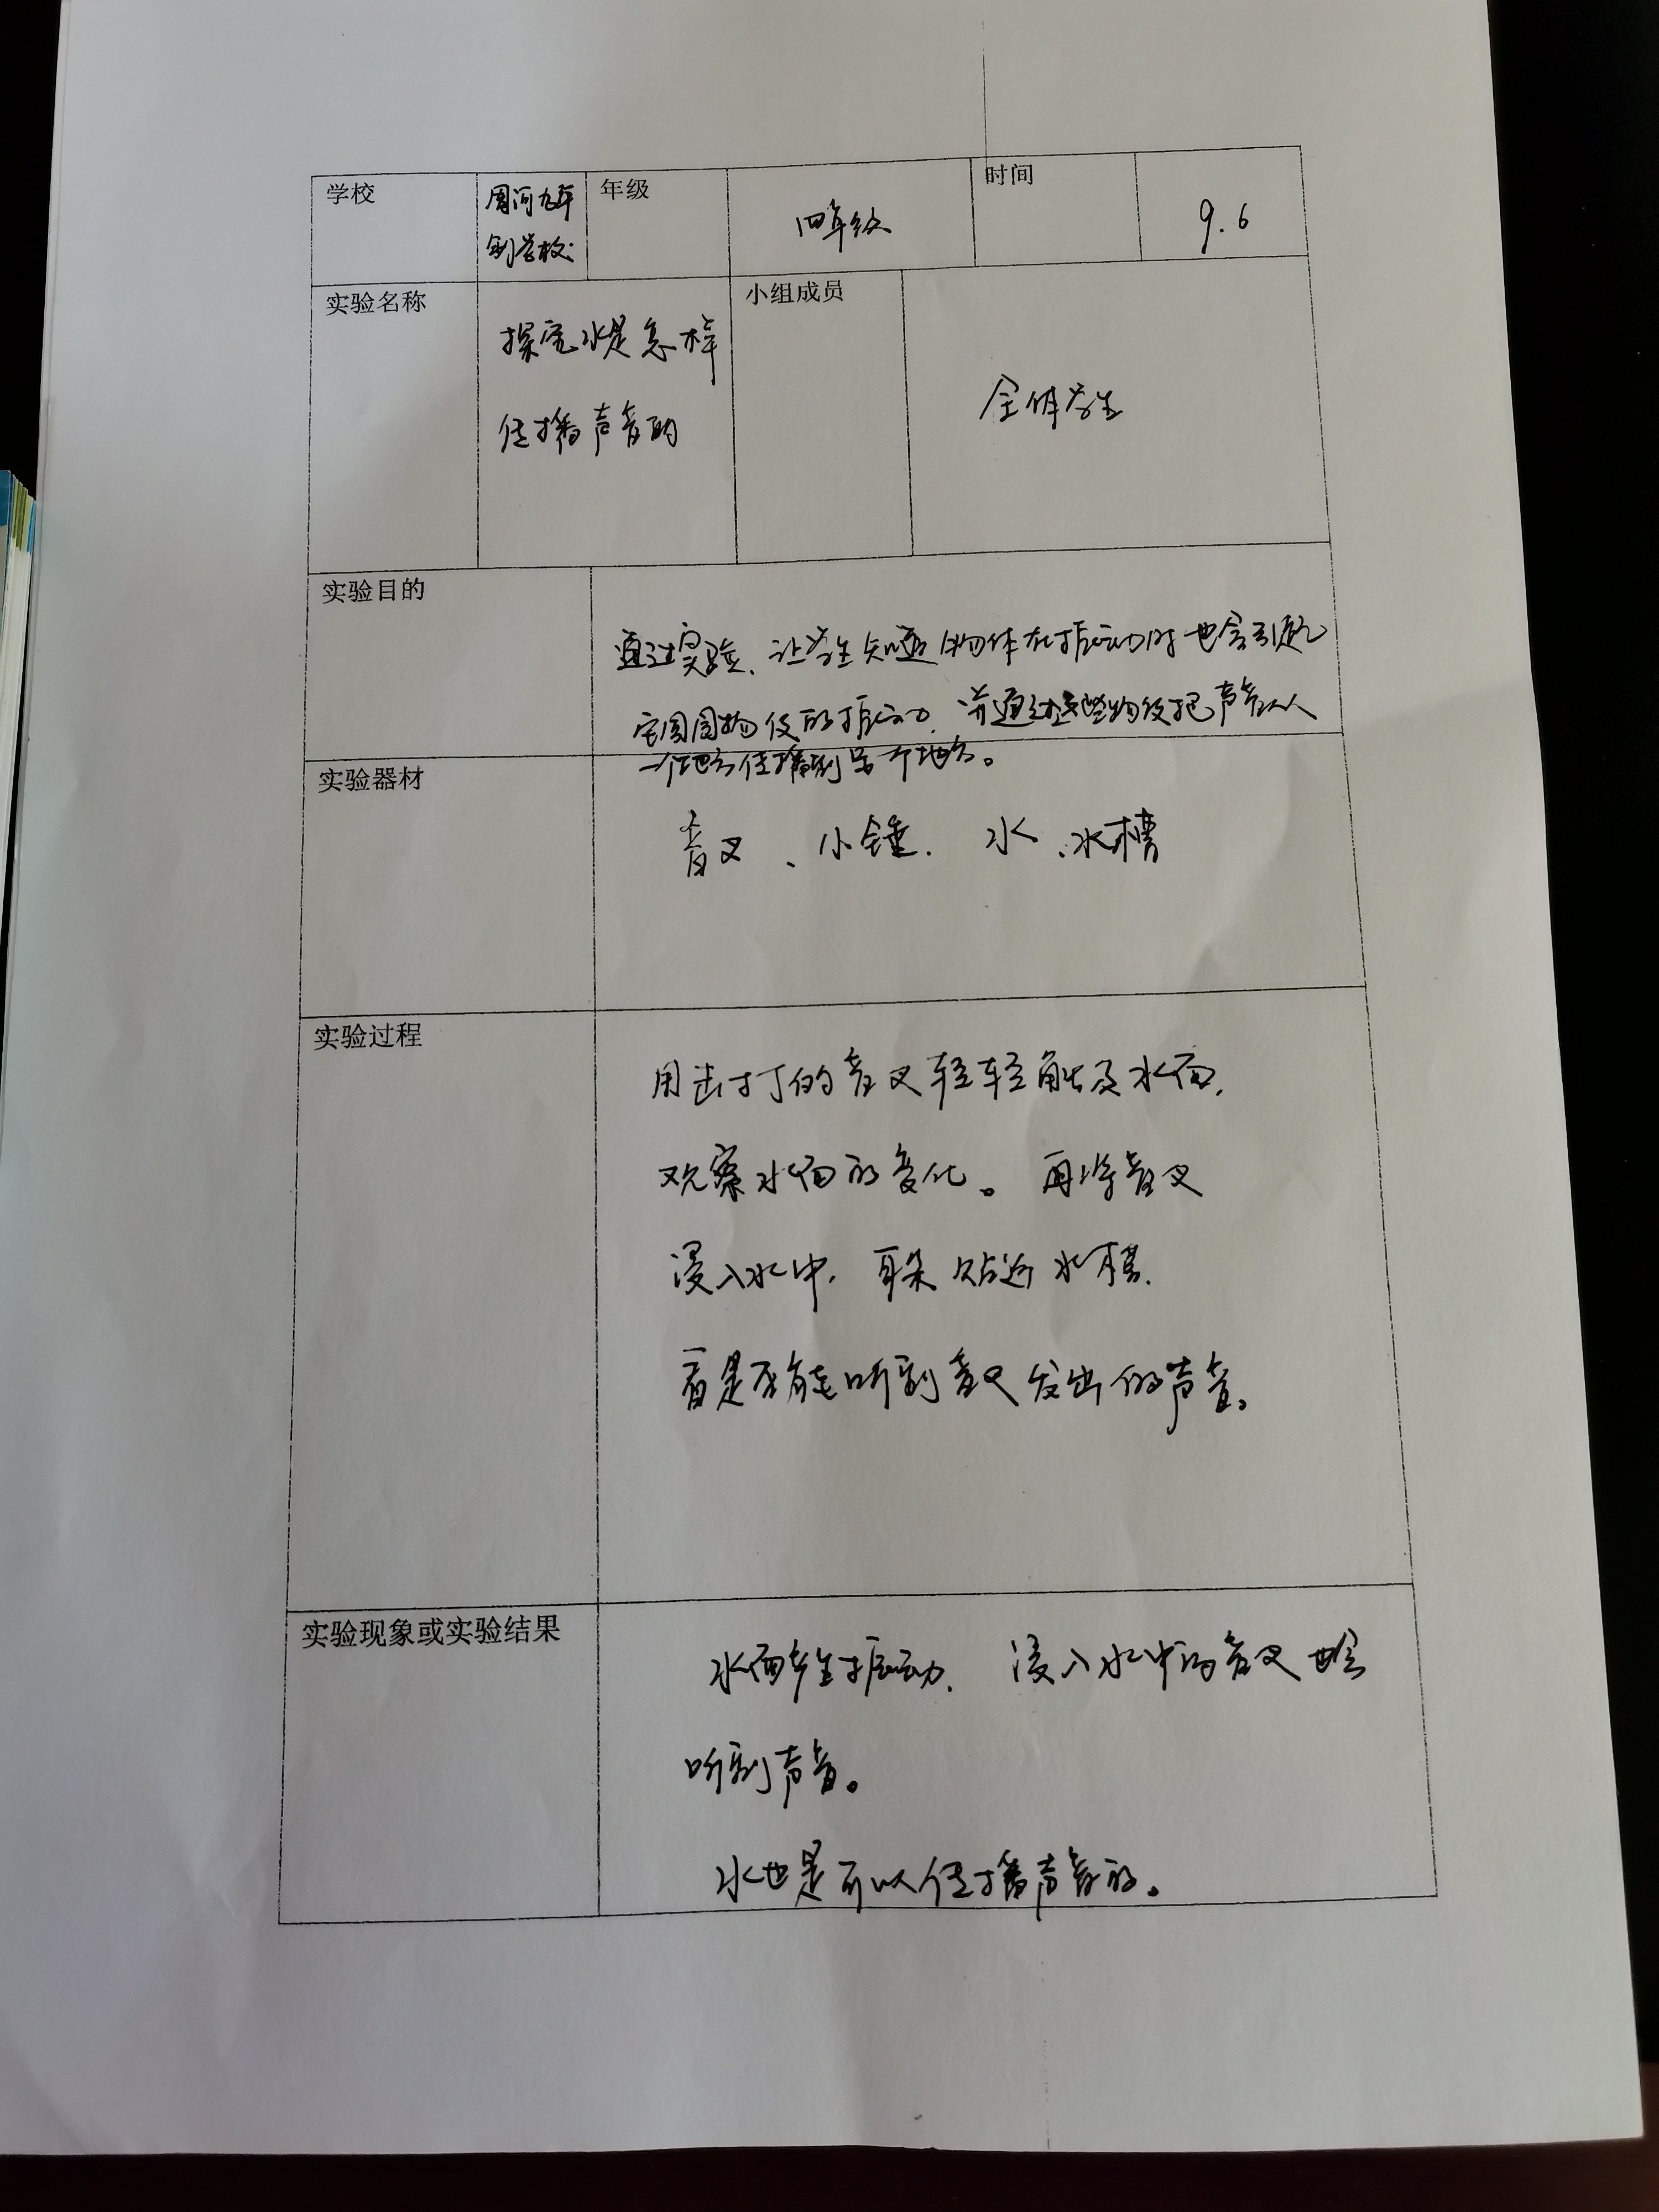 学校 周河九年 年级 四年级 时间 9.6
制学校
实验名称 探究水是怎样 小组成员 全体学生
传播声音的
实验目的
通过实验、让学生知道物体在振动时也会引起
它周围物体的振动,并通过这些物体把声音从
一个地方传播到另一个地方。
实验器材
音叉、小锤、水、水槽
实验过程
用击打的音叉轻轻触及水面,
观察水面的变化。再将音叉
浸入水中,耳朵贴近水槽,
看是否能听到音叉发出的声音。
实验现象或实验结果
水面产生振动,浸入水中的音叉也会
听到声音。
水也是可以传播声音的。